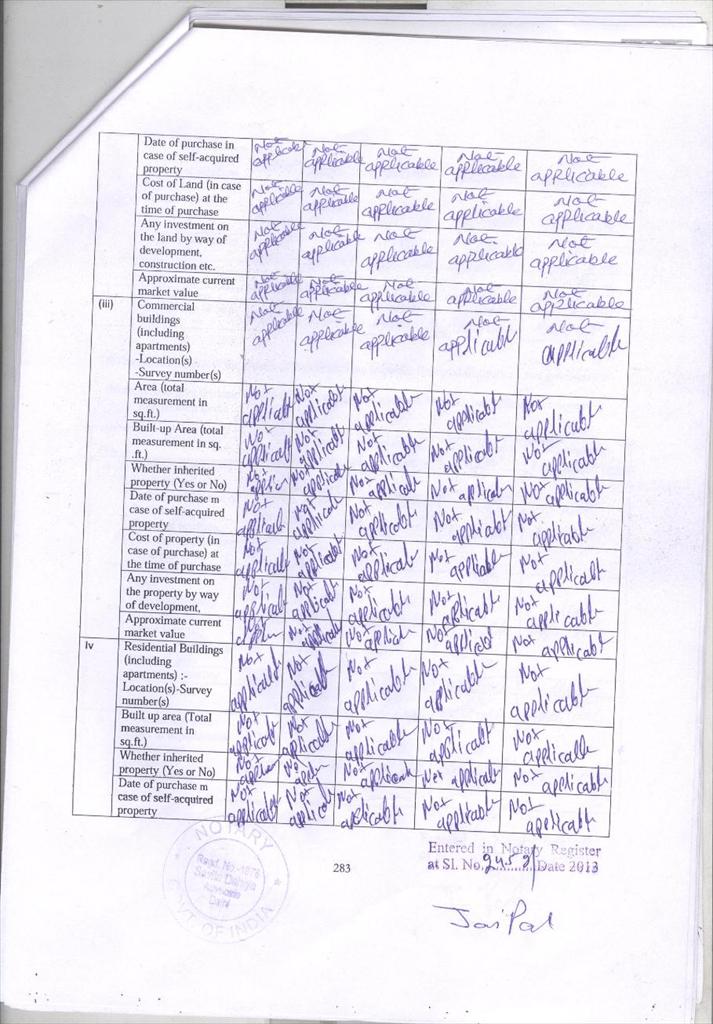 Date of purchase in
case of self-acquired
property
Not applicable Not applicable Not applicable Not applicable Not applicable
Cost of Land (in case
of purchase) at the
time of purchase
Not applicable Not applicable Not applicable Not applicable Not applicable
Any investment on
the land by way of
development,
construction etc.
Not applicable Not applicable Not applicable Not applicable Not applicable
Approximate current
market value
Not applicable Not applicable Not applicable Not applicable Not applicable
(iii) Commercial
buildings
(including
apartments)
-Location(s)
-Survey number(s)
Not applicable Not applicable Not applicable Not applicable Not applicable
Area (total
measurement in
sq.ft.)
Not applicable Not applicable Not applicable Not applicable Not applicable
Built-up Area (total
measurement in sq.
.ft.)
Not applicable Not applicable Not applicable Not applicable Not applicable
Whether inherited
property (Yes or No)
Not applicable Not applicable Not applicable Not applicable Not applicable
Date of purchase m
case of self-acquired
property
Not applicable Not applicable Not applicable Not applicable Not applicable
Cost of property (in
case of purchase) at
the time of purchase
Not applicable Not applicable Not applicable Not applicable Not applicable
Any investment on
the property by way
of development,
Not applicable Not applicable Not applicable Not applicable Not applicable
Approximate current
market value
Not applicable Not applicable Not applicable Not applicable Not applicable
iv Residential Buildings
(including
apartments) :-
Location(s)-Survey
number(s)
Not applicable Not applicable Not applicable Not applicable Not applicable
Built up area (Total
measurement in
sq.ft.)
Not applicable Not applicable Not applicable Not applicable Not applicable
Whether inherited
property (Yes or No)
Not applicable Not applicable Not applicable Not applicable Not applicable
Date of purchase m
case of self-acquired
property
Not applicable Not applicable Not applicable Not applicable Not applicable
NOTARY
Advocate
Delhi
GOVT. OF INDIA
283
Entered in Notary Register
at Sl. No. Date 2013
Jai Pal